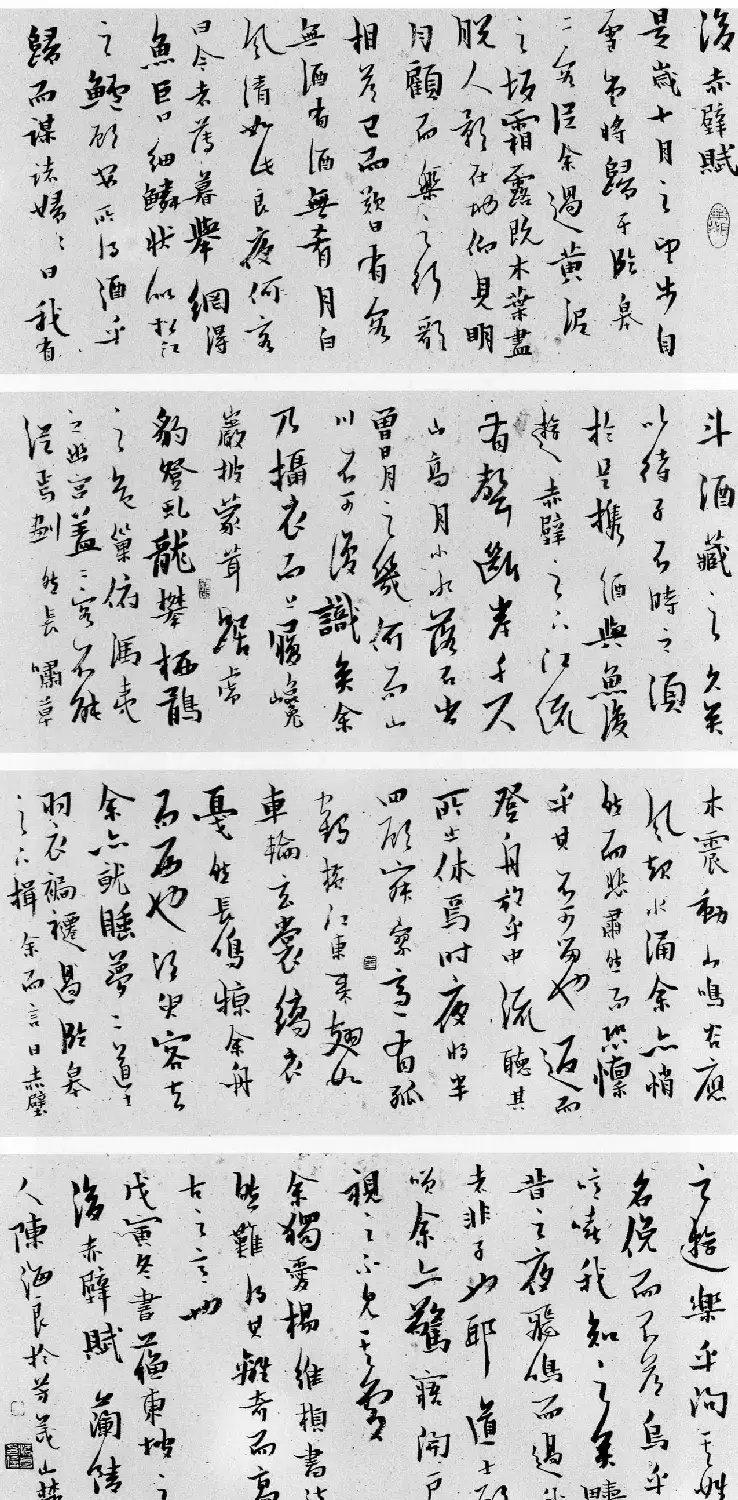 後赤壁賦
是歲十月之望步自
雪堂將歸于臨皋
二客從余過黃泥
之坂霜露既木葉盡
脫人影在地仰見明
月顧而樂之行歌
相答已而歎曰有客
無酒有酒無肴月白
風清如此良夜何客
曰今者薄暮舉網得
魚巨口細鱗狀似松江
之鱸顧安所得酒乎
歸而謀諸婦婦曰我有
斗酒藏之久矣
以待子不時之須
於是攜酒與魚復
遊赤壁之下江流
有聲斷岸千尺
山高月小水落石出
曾日月之幾何而山
川不可復識矣余
乃攝衣而上履巉
巖披蒙茸踞虎
豹登虬龍攀栖鶻
之危巢俯馮夷
之幽宮蓋二客不能
從焉劃然長嘯草
木震動山鳴谷應
風起水涌余亦悄
然而悲肅然而恐懍
乎其不可留也返而
登舟放乎中流聽其
所止休焉時夜將半
四顧寂寥適有孤
鶴橫江東來翅如
車輪玄裳縞衣
戛然長鳴掠余舟
而西也須臾客去
余亦就睡夢二道士
羽衣褊褼過臨皋
之下揖余而言曰赤壁
之遊樂乎問其姓
名俛而不答烏乎
噫嘻我知之矣疇
昔之夜飛鳴而過
者非子也耶道士顧
笑余亦驚寤開戶
視之不見其處
余獨愛楊維楨書法
然難得其離奇而高
古之意也
戊寅冬書蘇東坡之
後赤壁賦 蘭陵
人陳海良於